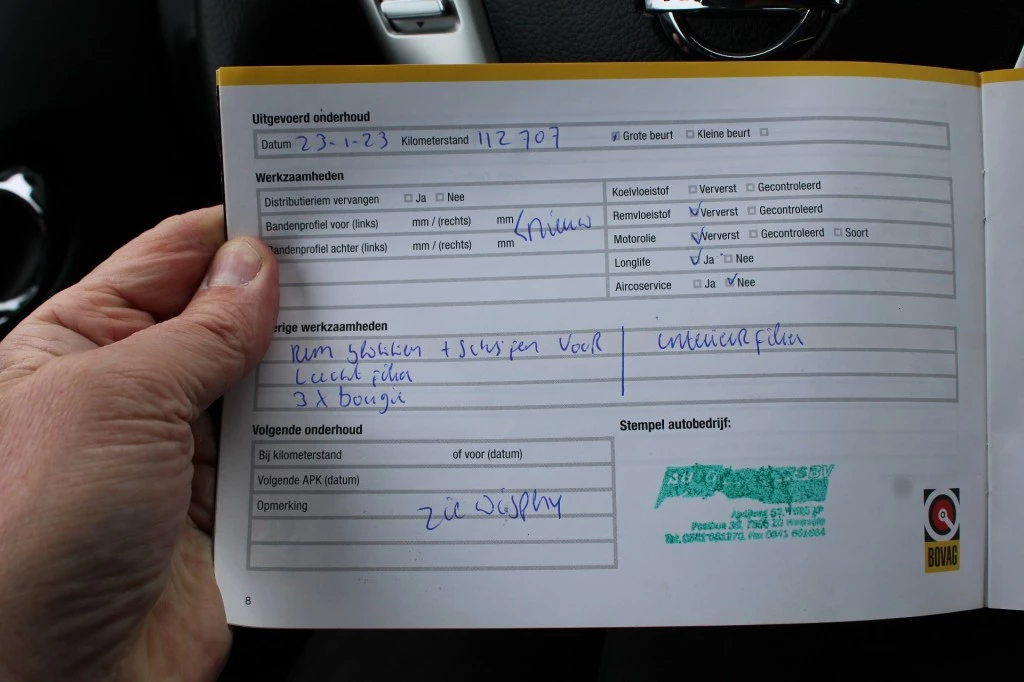 Uitgevoerd onderhoud
Datum 23-1-23 Kilometerstand 112 707 Grote beurt Kleine beurt
Werkzaamheden
Distributieriem vervangen Ja Nee
Bandenprofiel voor (links) mm / (rechts) mm
nieuw
andenprofiel achter (links) mm / (rechts) mm
Koelvloeistof Ververst Gecontroleerd
Remvloeistof Ververst Gecontroleerd
Motorolie Ververst Gecontroleerd Soort
Longlife Ja Nee
Aircoservice Ja Nee
erige werkzaamheden
Rem blokken + schijfen voor
Luchtfilter
3 x bougie
interieurfilter
Volgende onderhoud
Bij kilometerstand of voor (datum)
Volgende APK (datum)
Opmerking
zie display
Stempel autobedrijf:
Postbus 30,
BOVAG
8